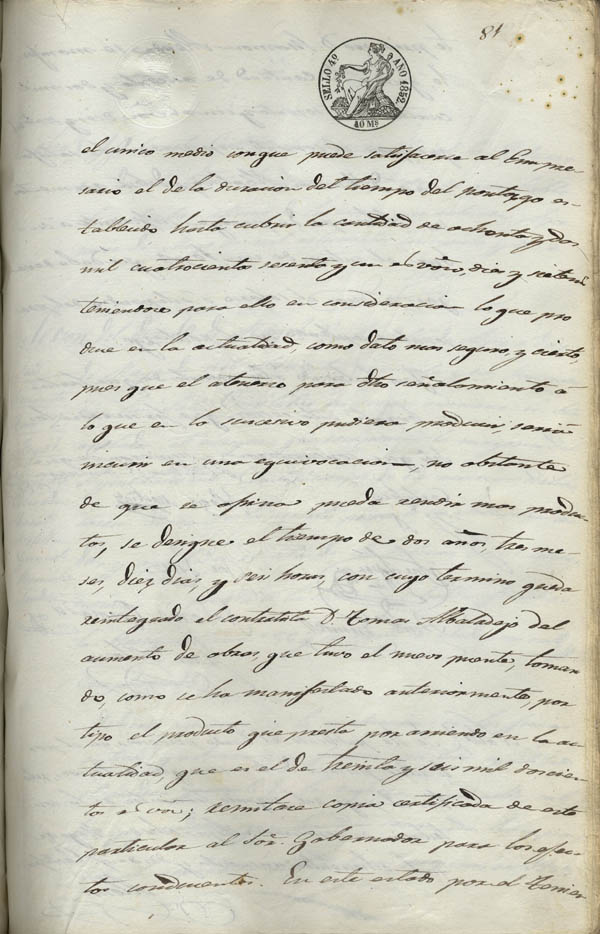 81
SELLO 4º AÑO 1852.
40 Ms
el unico medio con que puede satisfacerse al Empre-
sario el de la duracion del tiempo del pontazgo es-
tablecido hasta cubrir la cantidad de ochenta y dos
mil cuatrocientos sesenta y un rs von, diez y siete ms
teniendose para ello en consideracion lo que pro
duce en la actualidad, como dato mas seguro, y cierto,
pues que el atenerse para dho señalamiento á
lo que en lo sucesivo pudiera producir, seria
incurrir en una equivocacion, no obstante
de que se opina pueda rendir mas produc-
tos, se designe el tiempo de dos años, tres me-
ses, diez dias, y seis horas, con cuyo termino queda
reintegrado el contratista D. Tomas Albaladejo del
aumento de obras, que tuvo el nuevo puente, toman
do, como se ha manifestado anteriormente, por
tipo el producto que presta por arriendo en la ac-
tualidad, que es el de treinta y seis mil doscien-
tos rs von; remitase copia certificada de este
particular al Sor. Gobernador para los efec-
tos conducentes. En este estado por el Tenien